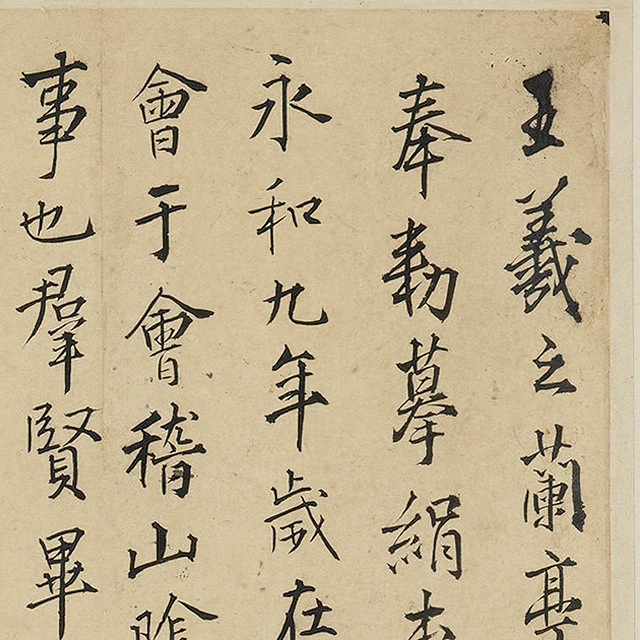 王羲之蘭亭
奉勅摹絹本
永和九年歲在
會于會稽山陰
事也羣賢畢